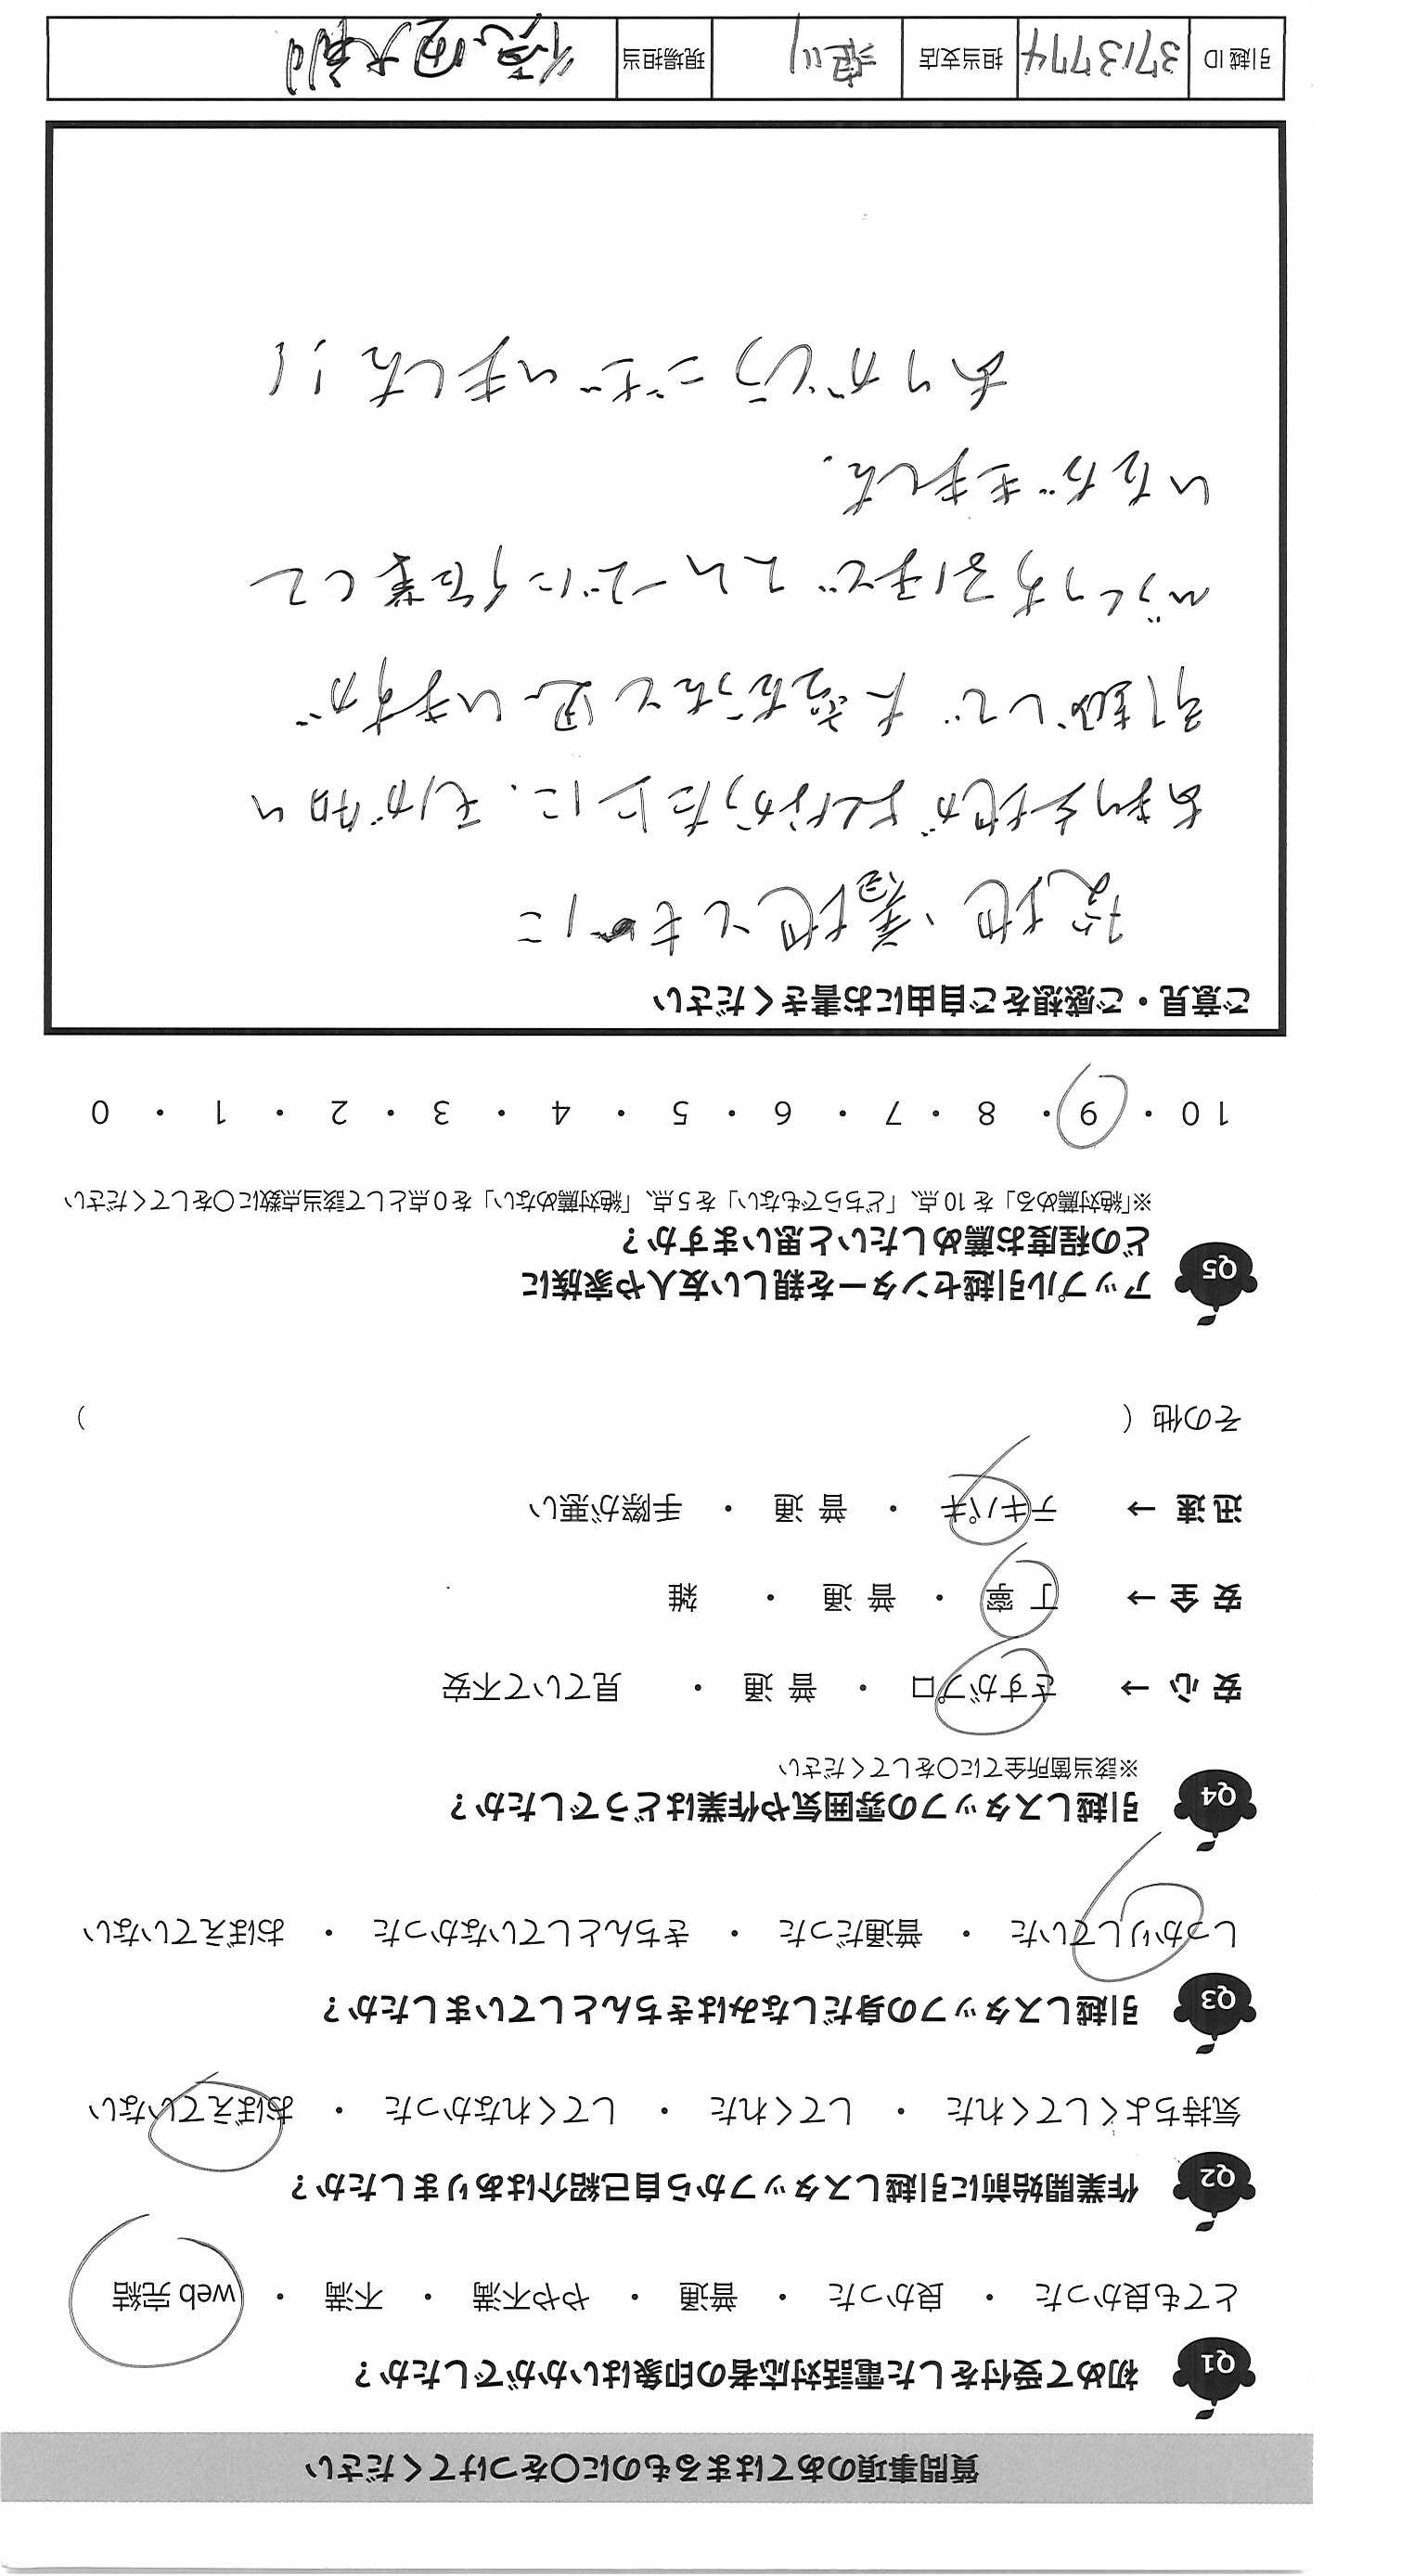 質問事項のあてはまるものに○をつけてください
Q1 初めて受付をした電話対応者の印象はいかがでしたか？
とても良かった ・ 良かった ・ 普通 ・ やや不満 ・ 不満 ・ web 完結
Q2 作業開始前に引越しスタッフから自己紹介はありましたか？
気持ちよくしてくれた ・ してくれた ・ してくれなかった ・ おぼえていない
Q3 引越しスタッフの身だしなみはきちんとしていましたか？
しっかりしていた ・ 普通だった ・ きちんとしていなかった ・ おぼえていない
Q4 引越しスタッフの雰囲気や作業はどうでしたか？
※該当箇所全てに○をしてください
安心 → さすがプロ ・ 普通 ・ 見ていて不安
安全 → 丁寧 ・ 普通 ・ 雑
迅速 → テキパキ ・ 普通 ・ 手際が悪い
その他（ ）
Q5 アップル引越センターを親しい友人や家族に
どの程度お薦めしたいと思いますか？
※「絶対薦める」を 10 点、「どちらでもない」を 5 点、「絶対薦めない」を 0 点として該当点数に○をしてください
10 ・ 9 ・ 8 ・ 7 ・ 6 ・ 5 ・ 4 ・ 3 ・ 2 ・ 1 ・ 0
ご意見・ご感想をご自由にお書きください
発地、着地ともに
あまり土地がよくなかった上に、
引越しで大変だったと思いますが
スムーズに作業して
いただきました.
ありがとうございました!!
引越 ID 3713774 担当支店 現場担当